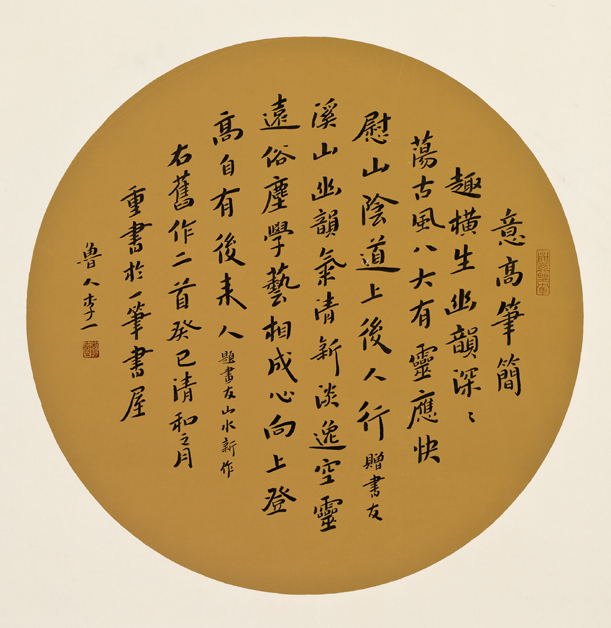 意高筆簡
趣橫生幽韻深〻
蕩古風八大有靈應快
慰山陰道上後人行贈書友
溪山幽韻氣清新淡逸空靈
遠俗塵學藝相成心向上登
高自有後来人題畫友山水新作
右舊作二首癸巳清和之月
重書於一筆書屋
魯人李一